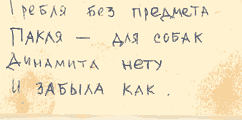 Гребля без предмета
Пакля — для собак
Динамита нету
И забыла как.